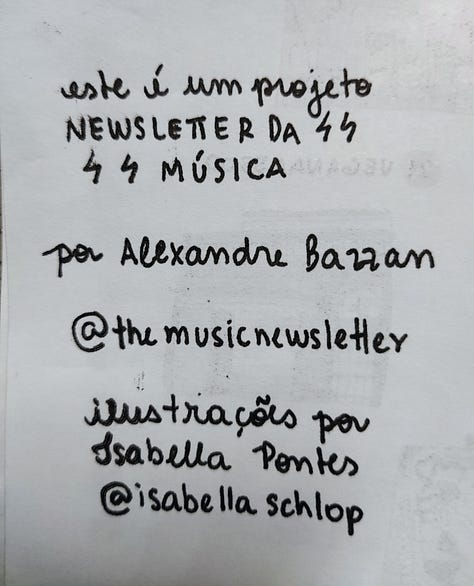 este é um projeto
NEWSLETTER DA ϟϟ
ϟϟ MÚSICA
por Alexandre Bazzan
@themusicnewsletter
ilustrações por
Isabella Pontes
@isabella schlop